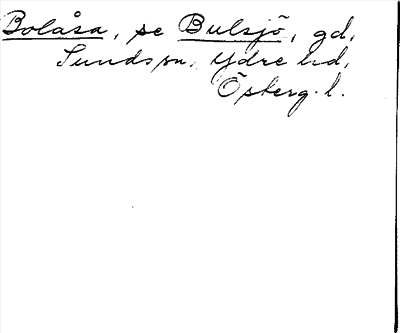 Bolåsa, se Bulsjö, gd,
Sunds sn. Ydre hd,
Österg. l.